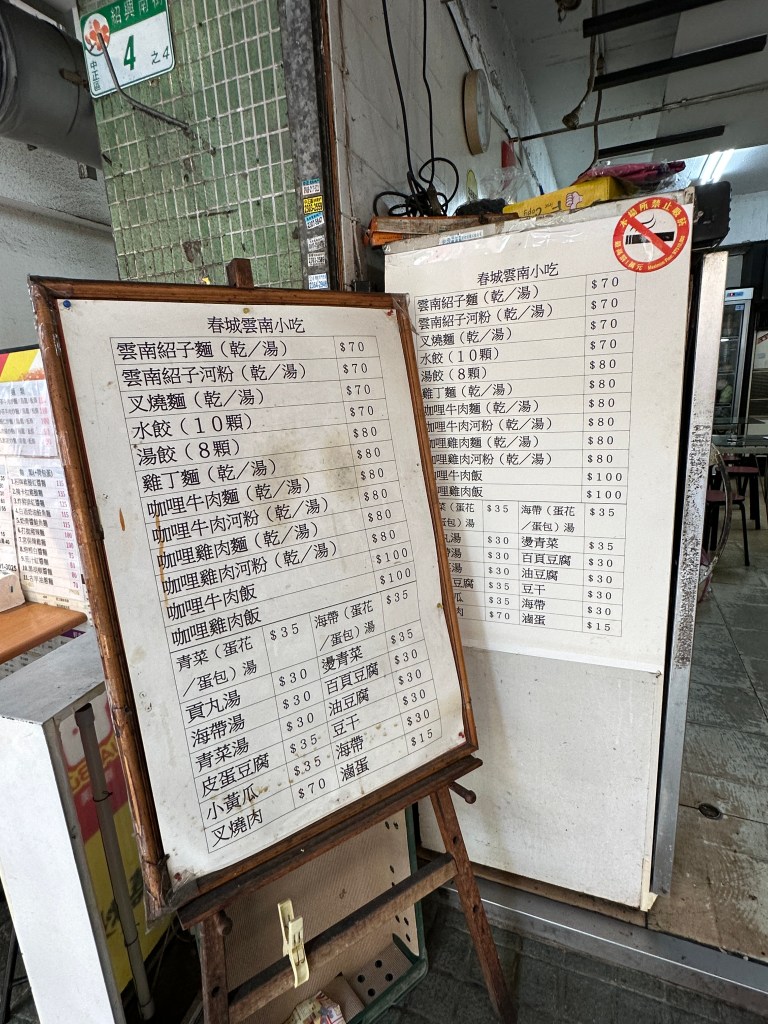 紹興南街
4 之4
中正區
春城雲南小吃
雲南紹子麵（乾／湯） $70
雲南紹子河粉（乾／湯） $70
叉燒麵（乾／湯） $70
水餃（10顆） $70
湯餃（8顆） $80
雞丁麵（乾／湯） $80
咖哩牛肉麵（乾／湯） $80
咖哩牛肉河粉（乾／湯） $80
咖哩雞肉麵（乾／湯） $80
咖哩雞肉河粉（乾／湯） $80
咖哩牛肉飯 $100
咖哩雞肉飯 $100
青菜（蛋花／蛋包）湯 $35 海帶（蛋花／蛋包）湯 $35
貢丸湯 $30 燙青菜 $35
海帶湯 $30 百頁豆腐 $30
青菜湯 $30 油豆腐 $30
皮蛋豆腐 $35 豆干 $30
小黃瓜 $35 海帶 $30
叉燒肉 $70 滷蛋 $15
本場所禁止吸菸
春城雲南小吃
雲南紹子麵（乾／湯） $70
雲南紹子河粉（乾／湯） $70
叉燒麵（乾／湯） $70
水餃（10顆） $70
湯餃（8顆） $80
雞丁麵（乾／湯） $80
咖哩牛肉麵（乾／湯） $80
咖哩牛肉河粉（乾／湯） $80
咖哩雞肉麵（乾／湯） $80
咖哩雞肉河粉（乾／湯） $80
牛肉飯 $100
雞肉飯 $100
菜（蛋花 $35 海帶（蛋花 $35
／蛋包）湯 ／蛋包）湯
丸湯 $30 燙青菜 $35
帶湯 $30 百頁豆腐 $30
湯 $30 油豆腐 $30
豆腐 $35 豆干 $30
瓜 $35 海帶 $30
肉 $70 滷蛋 $15